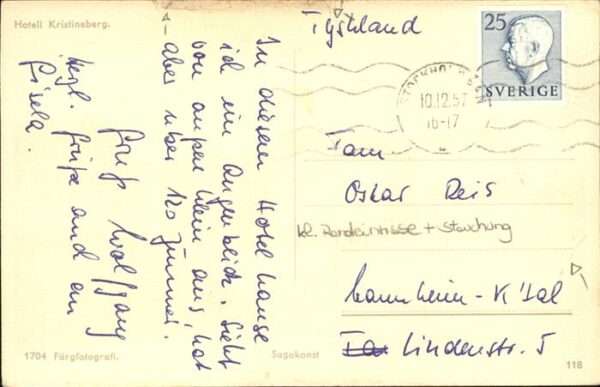 Hotell Kristineberg.
In diesem Hotel hause
ich im Augenblick. Sieht
von außen klein aus, hat
aber über 120 Zimmer.
Gruß Wolfgang
Herzl. Grüße auch an
Gisela.
1704 Färgfotografi.
Sagakonst
Tyskland
25
SVERIGE
STOCKHOLM
10.12.57
16-17
Fam
Oskar Reis
kl. Randeinrisse + Stauchung
Mannheim - K'tal
Lindenstr. 5
118